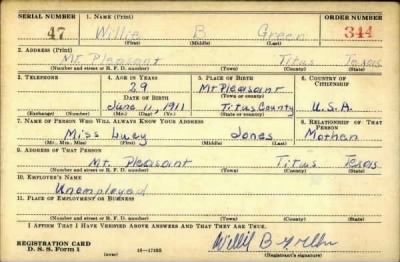 SERIAL NUMBER 1. NAME (Print) ORDER NUMBER
47 Willie B Green 344
(First) (Middle) (Last)
2. ADDRESS (Print)
Mt. Pleasant Titus Texas
(Number and street or R. F. D. number) (Town) (County) (State)
3. TELEPHONE 4. AGE IN YEARS 5. PLACE OF BIRTH 6. COUNTRY OF CITIZENSHIP
29 Mt Pleasant
DATE OF BIRTH (Town or county)
June 11, 1911 Titus County U.S.A.
(Exchange) (Number) (Mo.) (Day) (Yr.) (State or country)
7. NAME OF PERSON WHO WILL ALWAYS KNOW YOUR ADDRESS 8. RELATIONSHIP OF THAT PERSON
Miss Lucy Jones Mother
(Mr., Mrs., Miss) (First) (Middle) (Last)
9. ADDRESS OF THAT PERSON
Mt. Pleasant Titus Texas
(Number and street or R. F. D. number) (Town) (County) (State)
10. EMPLOYER'S NAME
Unemployed
11. PLACE OF EMPLOYMENT OR BUSINESS
(Number and street or R. F. D. number) (Town) (County) (State)
I AFFIRM THAT I HAVE VERIFIED ABOVE ANSWERS AND THAT THEY ARE TRUE.
REGISTRATION CARD
D. S. S. Form 1 (over) 16—17105 (Registrant's signature)